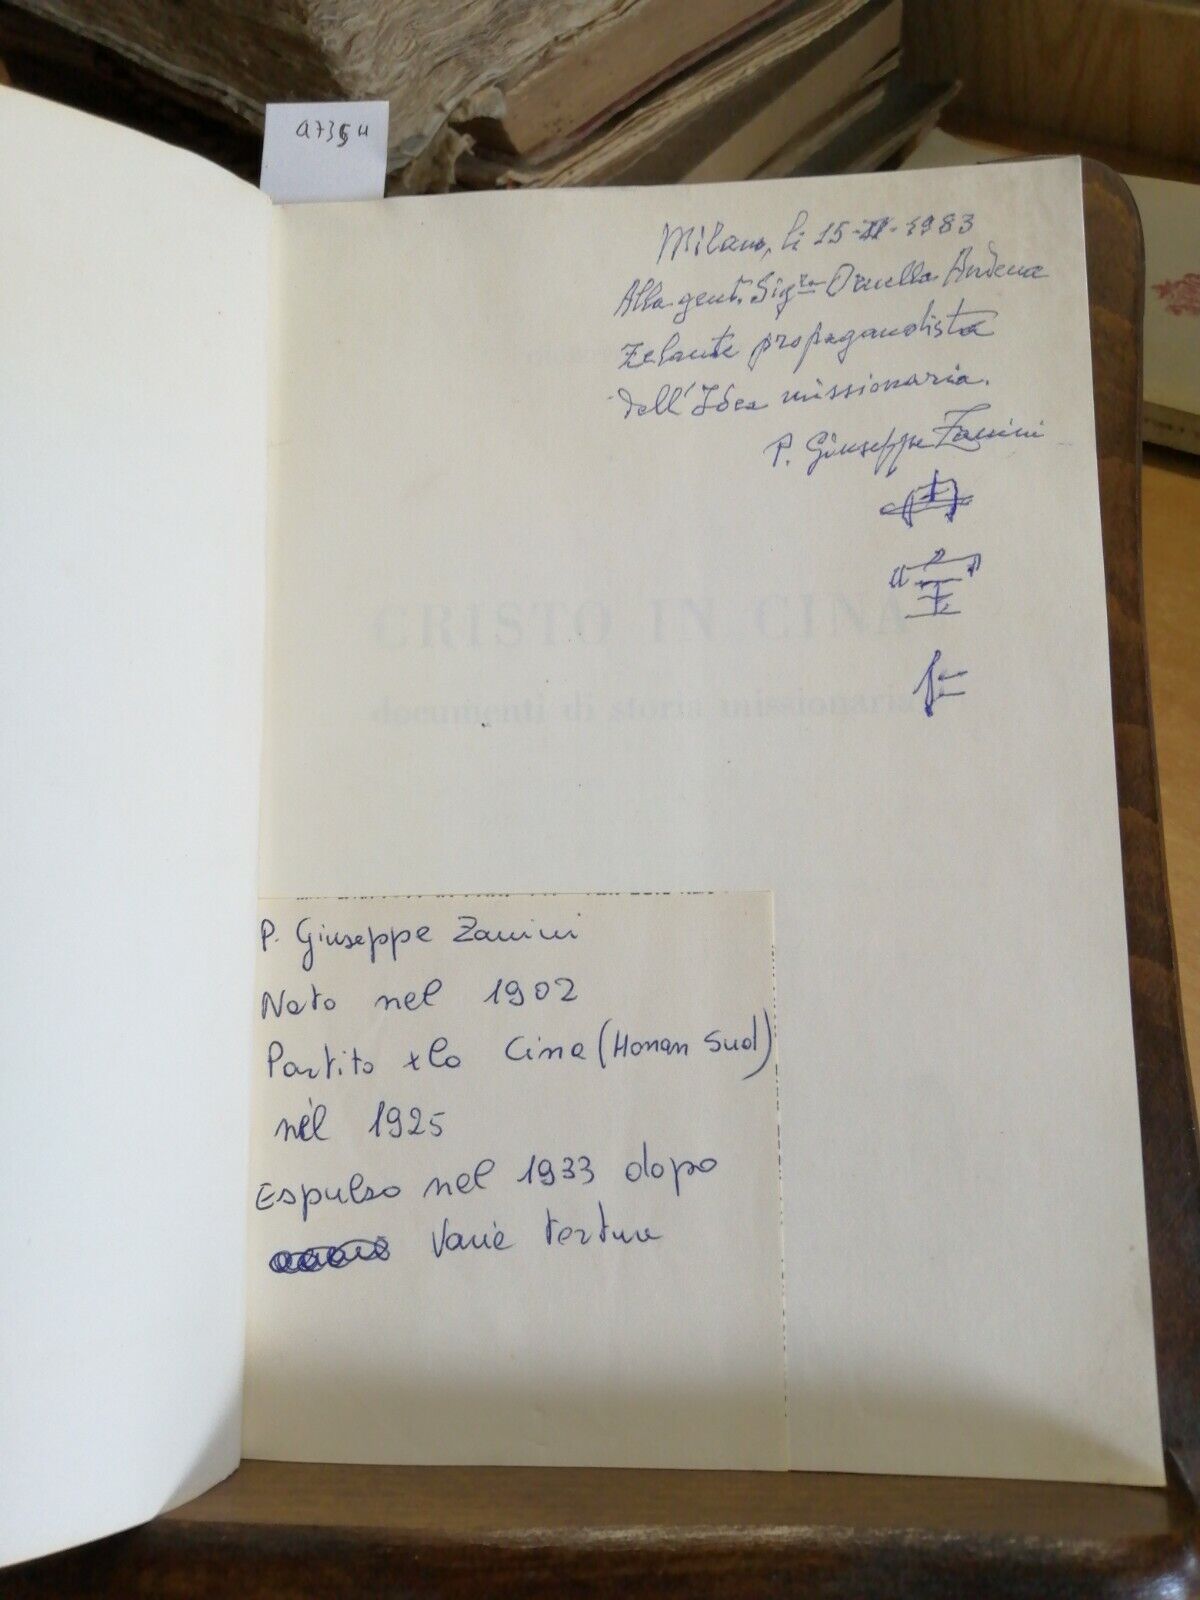 a735u
Milano, li 15-XI-1983
Alla gent. Sig.ra Ornella Andena
zelante propagandista
dell'Idea missionaria.
P. Giuseppe Zanini
CRISTO IN CINA
documenti di storia missionaria
P. Giuseppe Zanini
Nato nel 1902
Partito x la Cina (Honan Sud)
nel 1925
Espulso nel 1933 dopo
varie torture